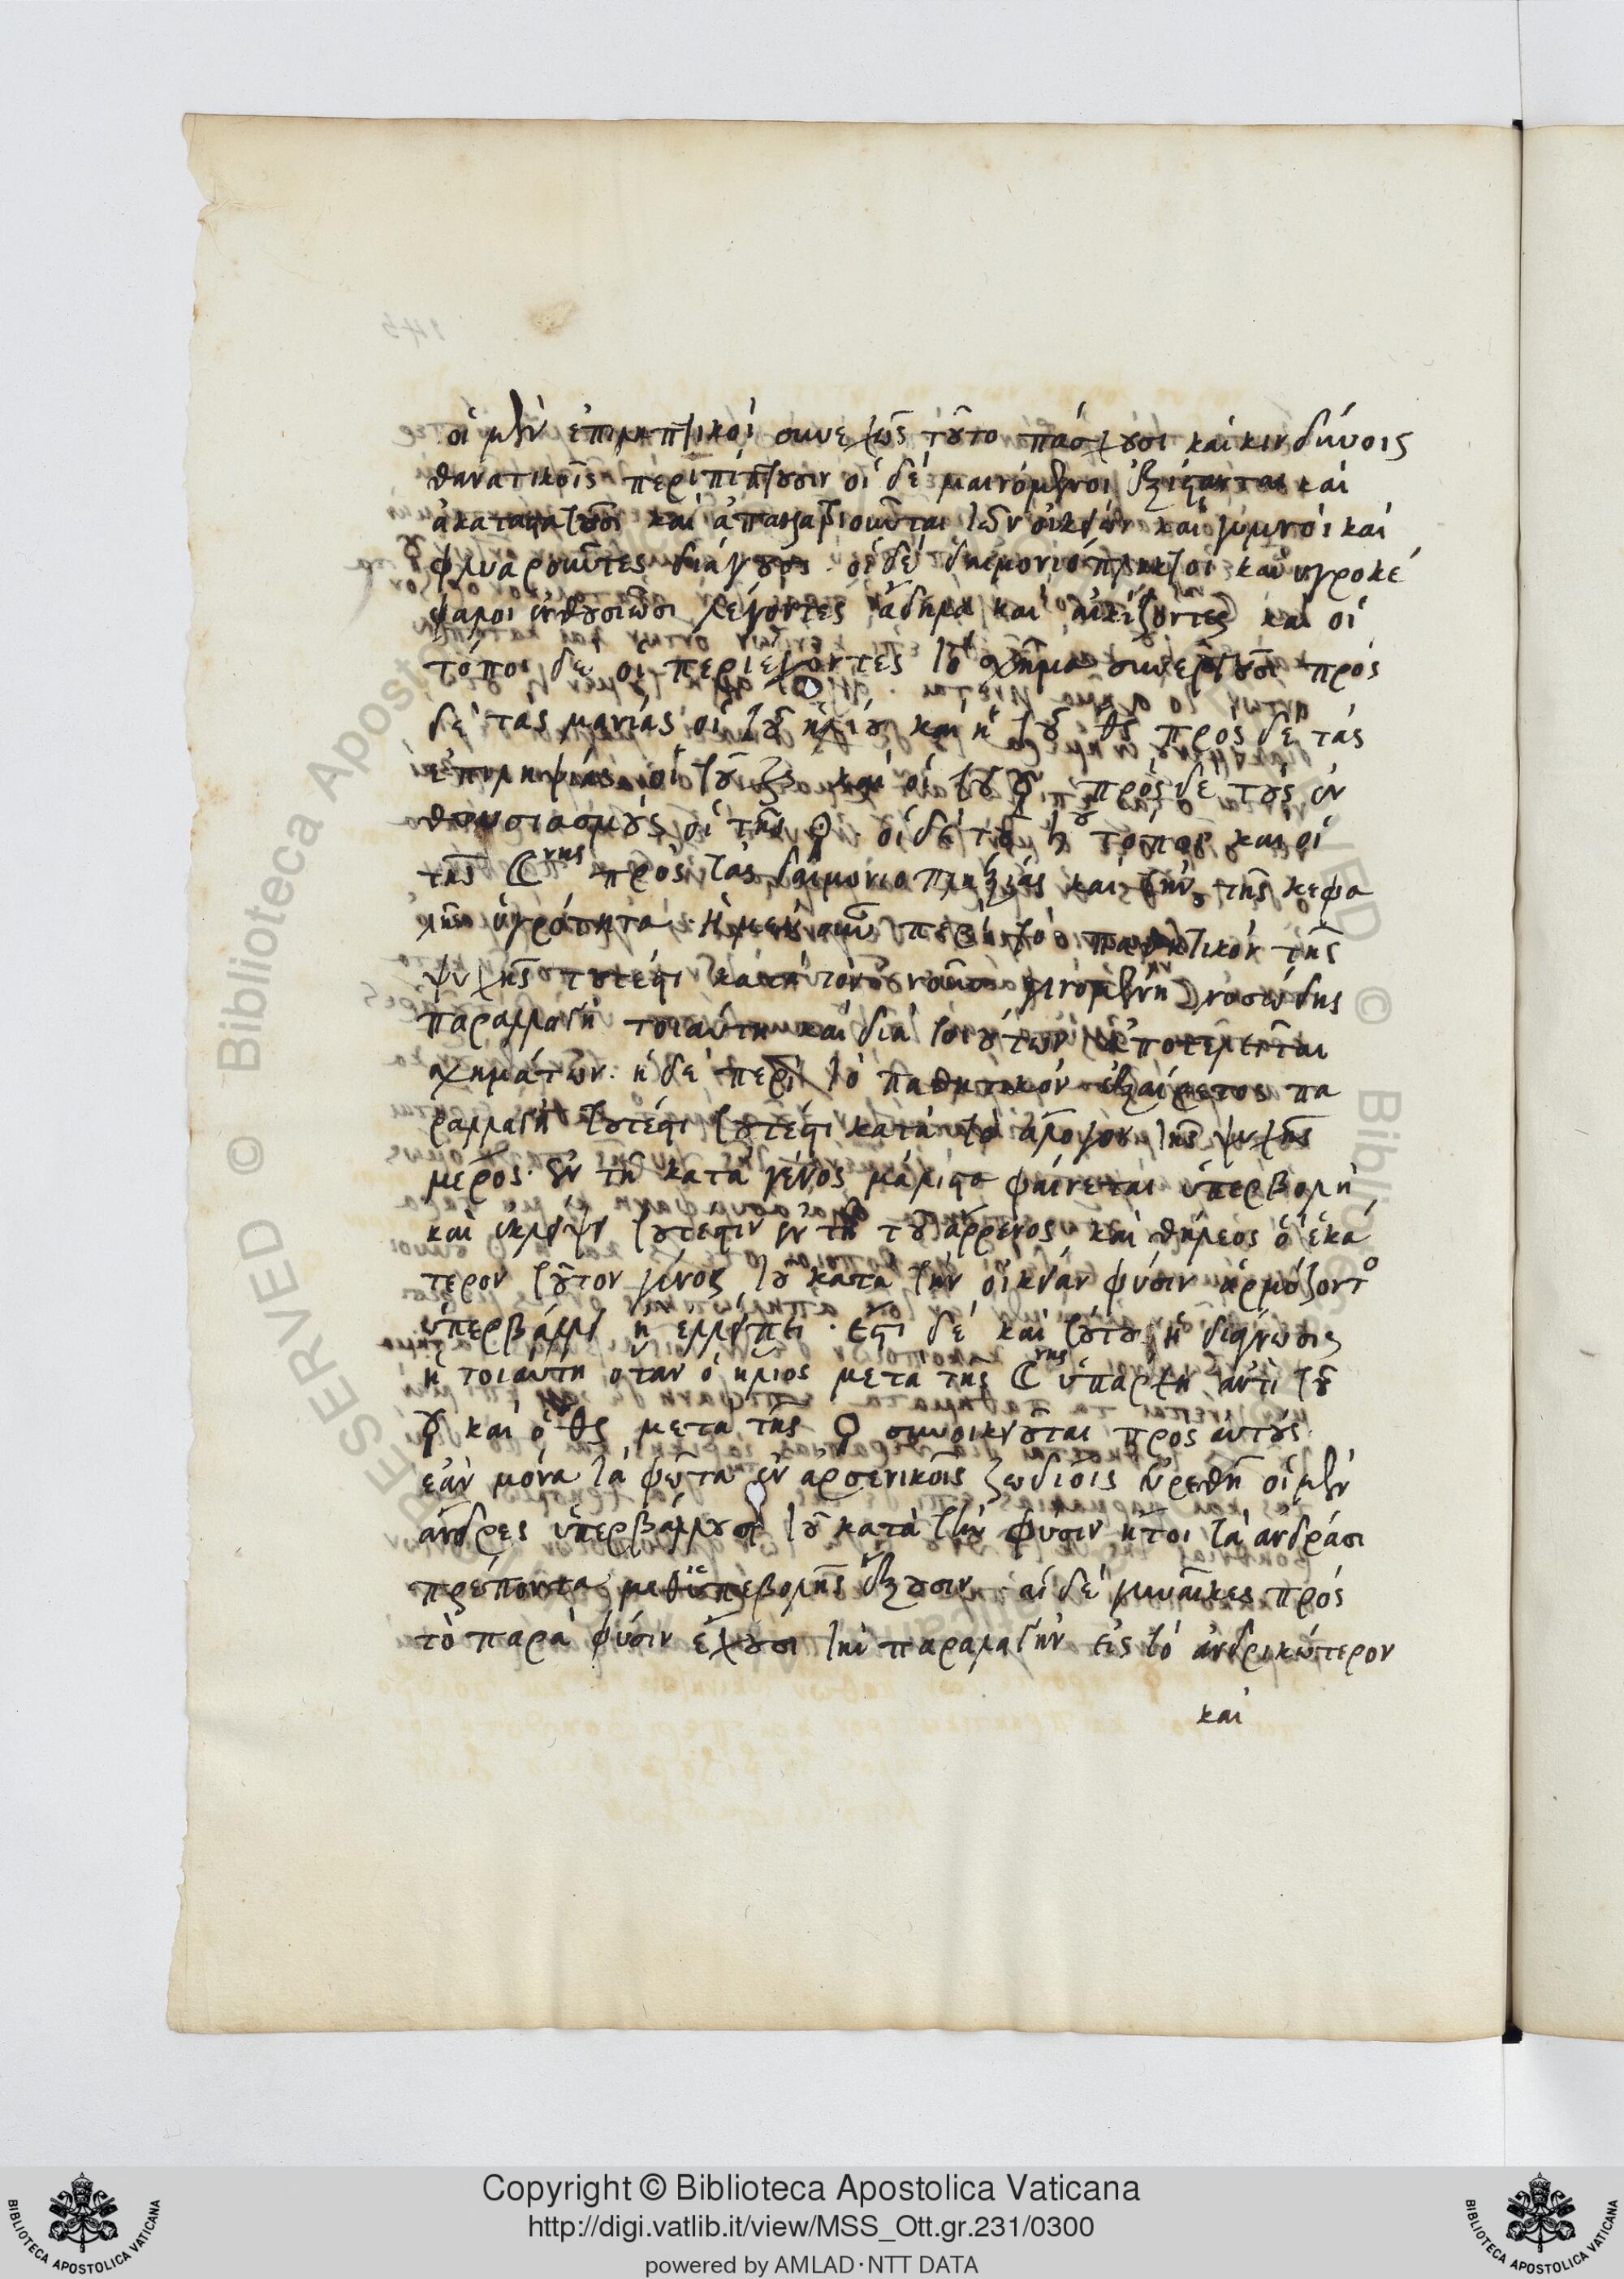 οἱ μὲν ἐπιληπτικοὶ συνεχῶς τοῦτο πάσχουσι καὶ κινδύνοις
θανατικοῖς περιπίπτουσιν οἱ δὲ μαινόμενοι ἐξίστανται καὶ
ἀκαταστατοῦσι καὶ ἀπαλλοτριοῦνται τῶν οἰκείων καὶ γυμνοὶ καὶ
φλυαροῦντες διάγουσι· οἱ δὲ δαιμονιόπληκτοι καὶ ὑγροκέ
φαλοι ἐνθουσιῶσι λέγοντες ἄδηλα καὶ αἰκίζοντες καὶ οἱ
τόποι δὲ οἱ περιέχοντες τὸ σχῆμα συνεργοῦσι πρὸς
δὲ τὰς μανίας οἱ τοῦ ἡλίου καὶ ἡ τοῦ ♂ς πρὸς δὲ τὰς
ἐπιληψίας οἱ τοῦ ζς καὶ οἱ τοῦ ☿ πρὸς δὲ τοὺς ἐν
θουσιασμοὺς οἱ τῆς ♀· οἱ δὲ τοῦ ♄ου τόποι καὶ οἱ
τῆς ☾νης πρὸς τὰς δαιμονιοπληξίας καὶ τὴν τῆς κεφα
λῆς ὑγρότητα· Ἡ μὲν οὖν περὶ τὸ ποιητικὸν τῆς
ψυχῆς τουτέστι κατὰ τὸν νοῦν γινομένη νοσώδης
παραλλαγὴ τοιαύτη καὶ διὰ τοιούτων ἀποτελεῖται
σχημάτων· ἡ δὲ περὶ τὸ παθητικὸν ἐξαίρετος πα
ραλλαγὴ τουτέστι τουτέστι κατὰ τὸ ἄλογον τῆς ψυχῆς
μέρος· ἐν τῇ κατὰ γένος μάλιστα φαίνεται ὑπερβολῇ
καὶ ἐκλείψει τουτέστιν ἐν τῇ τοῦ ἄρρενος καὶ θήλεος ὁ ἑκά
τερον τοῦτον γένος τοῦ κατὰ τὴν οἰκείαν φύσιν ἁρμόζοντο
ὑπερβάλλει ἢ ἐλλείπει· ἔστι δὲ καὶ τούτου ἡ διάγνωσις
ἡ τοιαύτη ὅταν ὁ ἥλιος μετὰ τῆς ☾νης ὑπάρχῃ ἀντὶ τοῦ
☿ καὶ ὁ ♂ς μετὰ τῆς ♀ συνοικειοῦται πρὸς αὐτούς·
ἐὰν μόνα τὰ φῶτα ἐν ἀρσενικοῖς ζωδίοις εὑρεθῇ οἱ μὲν
ἄνδρες ὑπερβάλλουσι τοῦ κατὰ τὴν φύσιν ἤτοι τὰ ἀνδράσι
πρέποντα μεθ' ὑπερβολῆς ἕξουσιν· αἱ δὲ γυναῖκες πρὸς
τὸ παρὰ φύσιν ἔχουσι τὴν παραλαγὴν εἰς τὸ ἀνδρικώτερον
καὶ
Copyright © Biblioteca Apostolica Vaticana
http://digi.vatlib.it/view/MSS_Ott.gr.231/0300
powered by AMLAD·NTT DATA
BIBLIOTECA APOSTOLICA VATICANA
BIBLIOTECA APOSTOLICA VATICANA